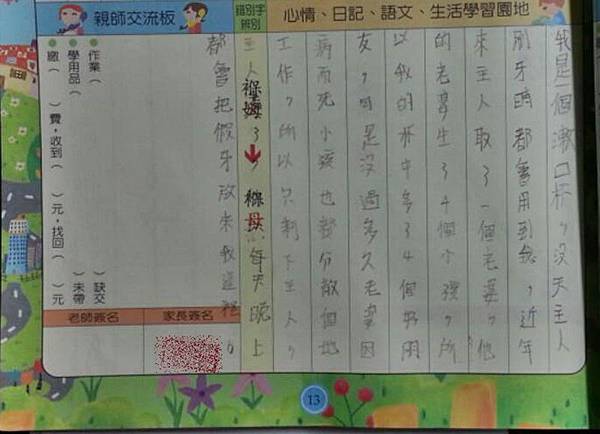 心情、日記、語文、生活學習園地
我是一個漱口杯，沒天主人
刷牙時都會用到我，近年
來主人取了一個老婆，他
的老婆生了4個小孩，所
以我的杯中多了4個好朋
友，可是沒過多久老婆因
病而死小孩也都分散個地
工作，所以只剩下主人，
錯別字辨別
褓姆
褓母
主人老了，每天晚上
都會把假牙放來我這裡。
親師交流板
作業（　　）缺交
學用品（　　）未帶
繳（　　）費，收到（　　）元，找回（　　）元
家長簽名
老師簽名
13